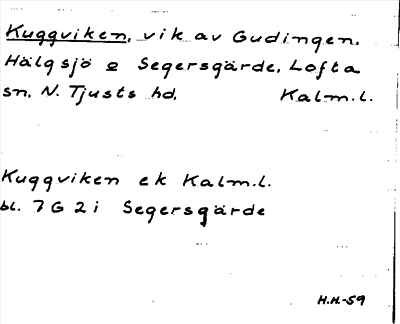 Kuggviken, vik av Gudingen.
Hälgsjö o Segersgärde, Lofta
sn, N. Tjusts hd, Kalm.l.
Kuggviken ek Kalm.l.
bl. 7 G 2 i Segersgärde
H.H.-59